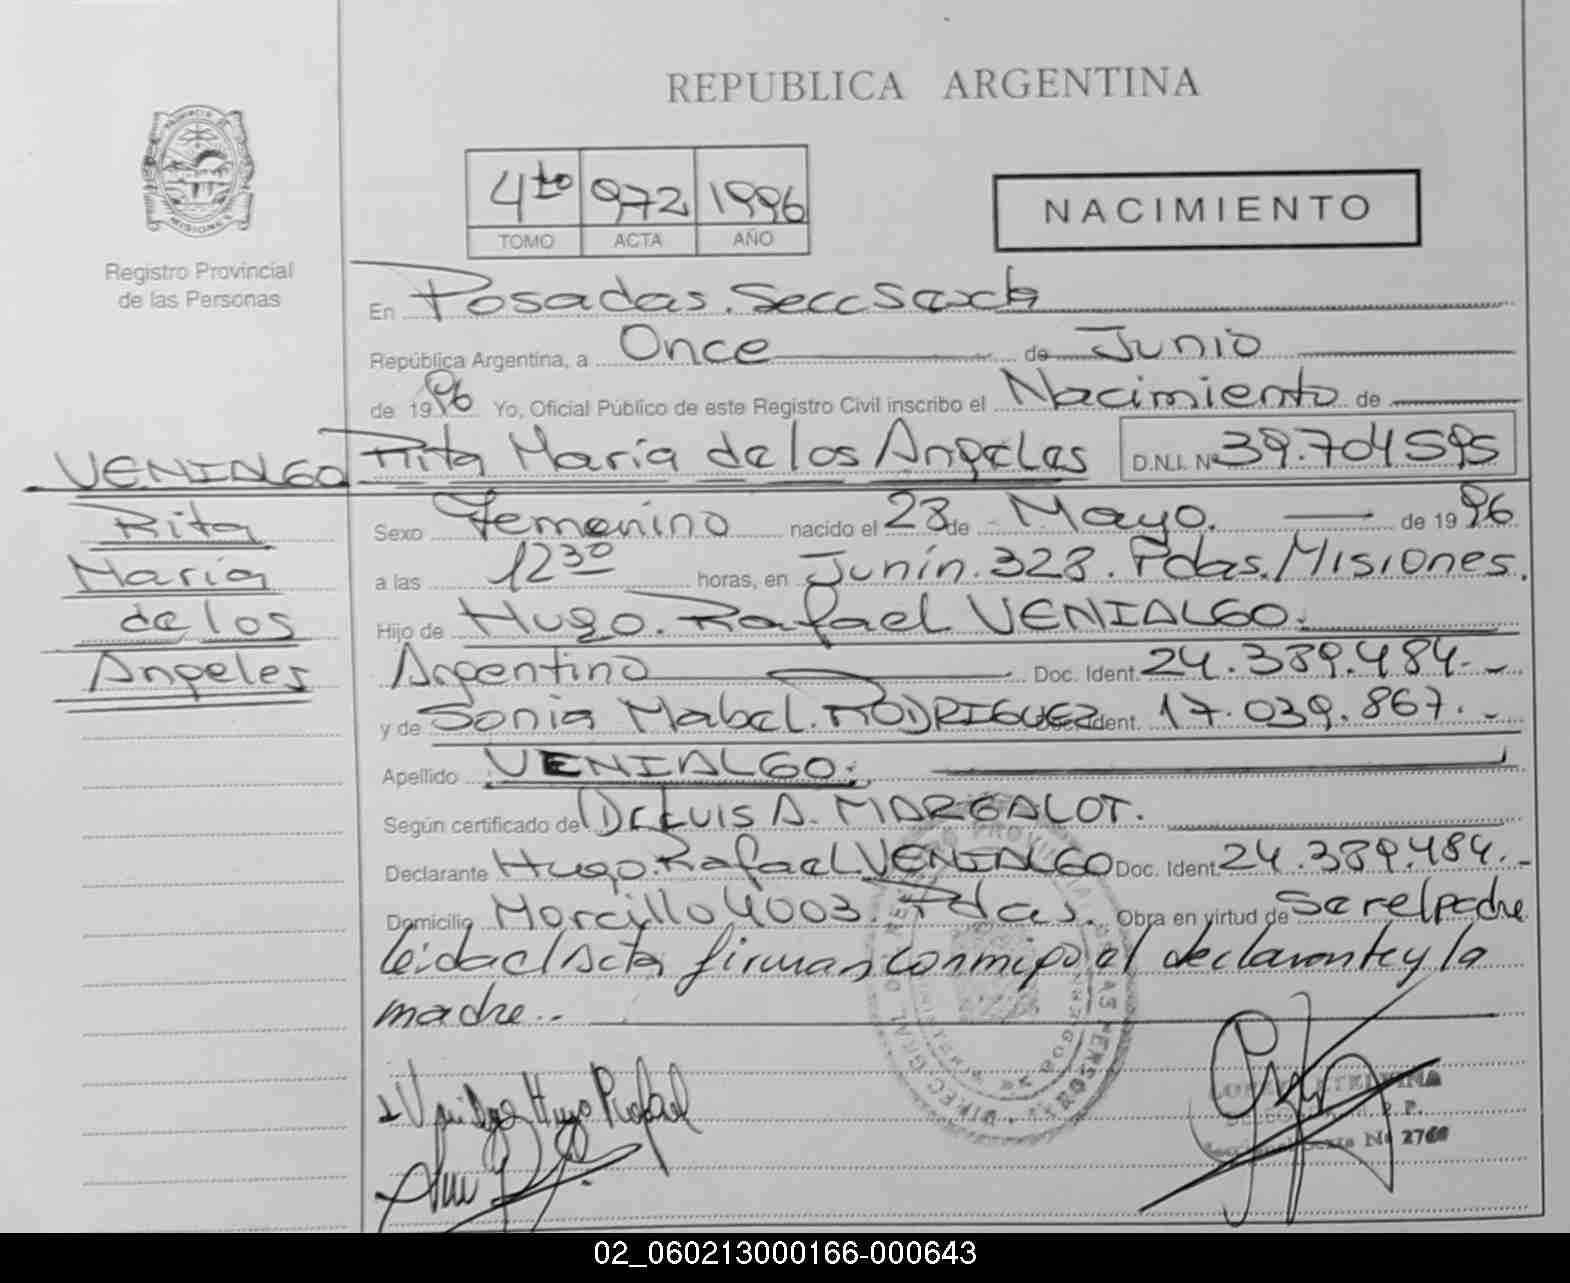 REPUBLICA ARGENTINA
PROVINCIA DE
MISIONES
Registro Provincial
de las Personas
4to 972 1996
TOMO ACTA AÑO
NACIMIENTO
En Posadas. Secc Sexta
República Argentina, a Once de Junio
de 1996 Yo, Oficial Público de este Registro Civil inscribo el Nacimiento de
VENIALGO Rita María de los Angeles D.N.I. Nº 39.704.595
Rita
María
de los
Angeles
Sexo Femenino nacido el 28 de Mayo. de 1996
a las 12 30 horas, en Junín. 328. Pdas. Misiones.
Hijo de Hugo. Rafael VENIALGO.
Argentino Doc. Ident. 24.389.484.-
y de Sonia Mabel. RODRIGUEZ Doc. Ident. 17.039.867.-
Apellido VENIALGO.
Según certificado de Dr LUIS A. MARGALOT.
Declarante Hugo. Rafael VENIALGO Doc. Ident. 24.389.484.-
Domicilio Morcillo 4003. Pdas. Obra en virtud de Ser el padre
leida el Acta firman conmigo el declarante y la
madre..
Venialgo Hugo Rafael
Nº 2760
02_060213000166-000643